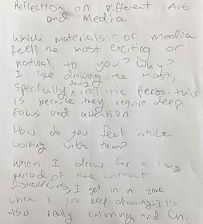 Reflection on Different Art
and Media
Which materials or media
feel the most exciting or
natural to you? Why?
I like drawing the most,
Specifically realistic faces. this
is because they require deep
focus and attention
How do you feel while
working with them?
When I draw for a long
period of time without
I get in a zone
where I just keep drawing. It's
also really calming and fun.